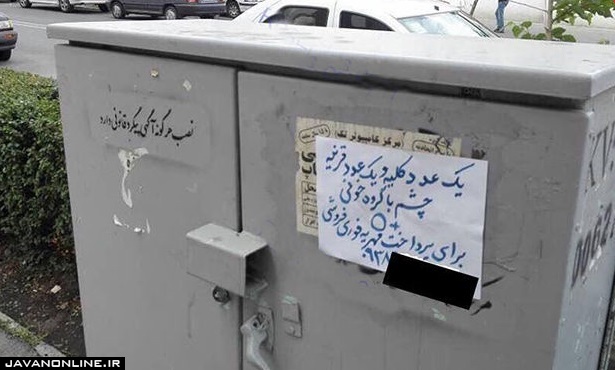 نصب هرگونه آگهی پیگرد قانونی دارد
مرکز کامپیوتر تک
یک عدد کلیه و یک عدد قرنیه
چشم با گروه خونی
O+
برای پرداخت مهریه فوری فروشی
۰۹۳۸
JAVANONLINE.IR